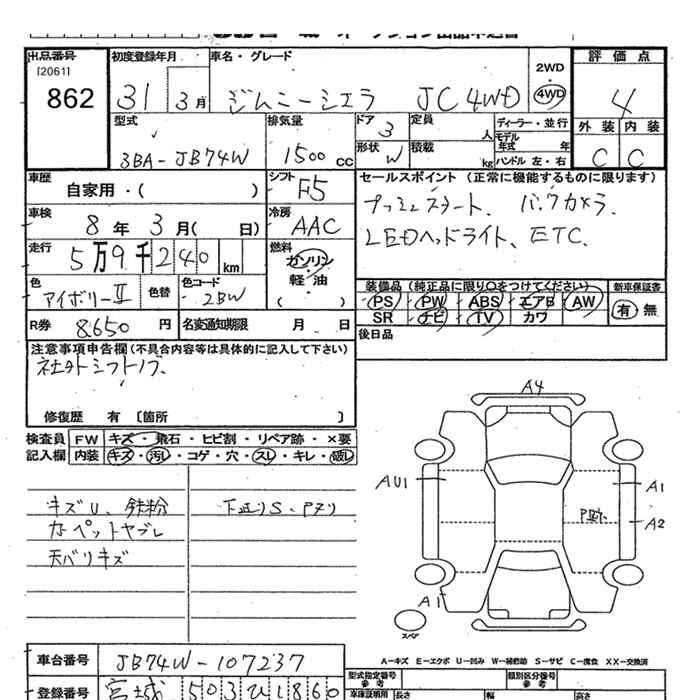 出品番号 初度登録年月 車名・グレード 2WD 評価点
[2061] 862 31 3月 ジムニーシエラ JC 4WD 4WD 4
型式 排気量 ドア 3 定員 人 ディーラー・並行 外装 内装
3BA-JB74W 1500cc 形状 W 積載 kg モデル年式 年 ハンドル 左・右 C C
車歴 自家用・( ) シフト F5 セールスポイント (正常に機能するものに限ります)
車検 8年 3月( 日) 冷房 AAC プッシュスタート、バックカメラ
走行 5万9千240km 燃料 ガソリン 軽油 ( ) LEDヘッドライト、ETC
色 アイボリーII 色替 色コード 2BW 装備品 (純正品に限り○をつけてください) 新車保証書
PS PW ABS エアB AW 有・無
R券 8650円 名変通知期限 月 日 SR ナビ TV カワ
後日品
注意事項申告欄(不具合内容等は具体的に記入して下さい)
社外シフトノブ
修復歴 有 〔箇所 〕
検査員 FW キズ・飛石・ヒビ割・リペア跡・×要
記入欄 内装 キズ・汚レ・コゲ・穴・スレ・キレ・破レ
キズU、鉄粉 下廻りS・Pアリ
カーペットヤブレ
天バリキズ
A4
AU1 A1
A2
A1
スペア
A-キズ E-エクボ U-凹み W-補修跡 S-サビ C-腐食 XX-交換済
車台番号 JB74W-107237 型式指定番号 参考 類別区分番号 参考
登録番号 宮城 503 車庫証明用 長さ 幅 高さ